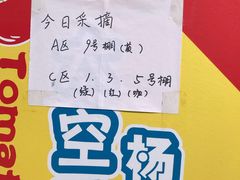 今日采摘
A区 9号棚(黄)
C区 1.3.5号棚
(绿)(红)(咖)
Tomat
空杨